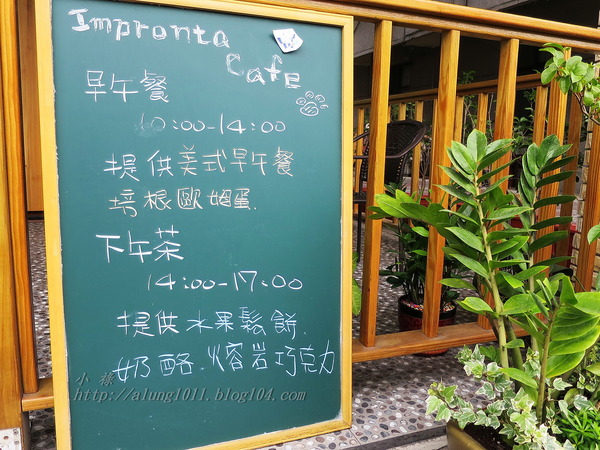 Impronta
Cafe
早午餐
10:00-14:00
提供美式早午餐
培根歐姆蛋.
下午茶
14:00-17:00
提供水果鬆餅.
奶酪.熔岩巧克力
小祿
http://alung1011.blog104.com/